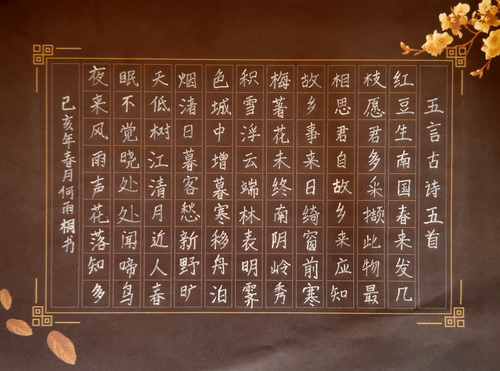 五言古诗五首
红豆生南国春来发几
枝愿君多采撷此物最
相思君自故乡来应知
故乡事来日绮窗前寒
梅著花未终南阴岭秀
积雪浮云端林表明霁
色城中增暮寒移舟泊
烟渚日暮客愁新野旷
天低树江清月近人春
眠不觉晓处处闻啼鸟
夜来风雨声花落知多
己亥年春月何雨桐书